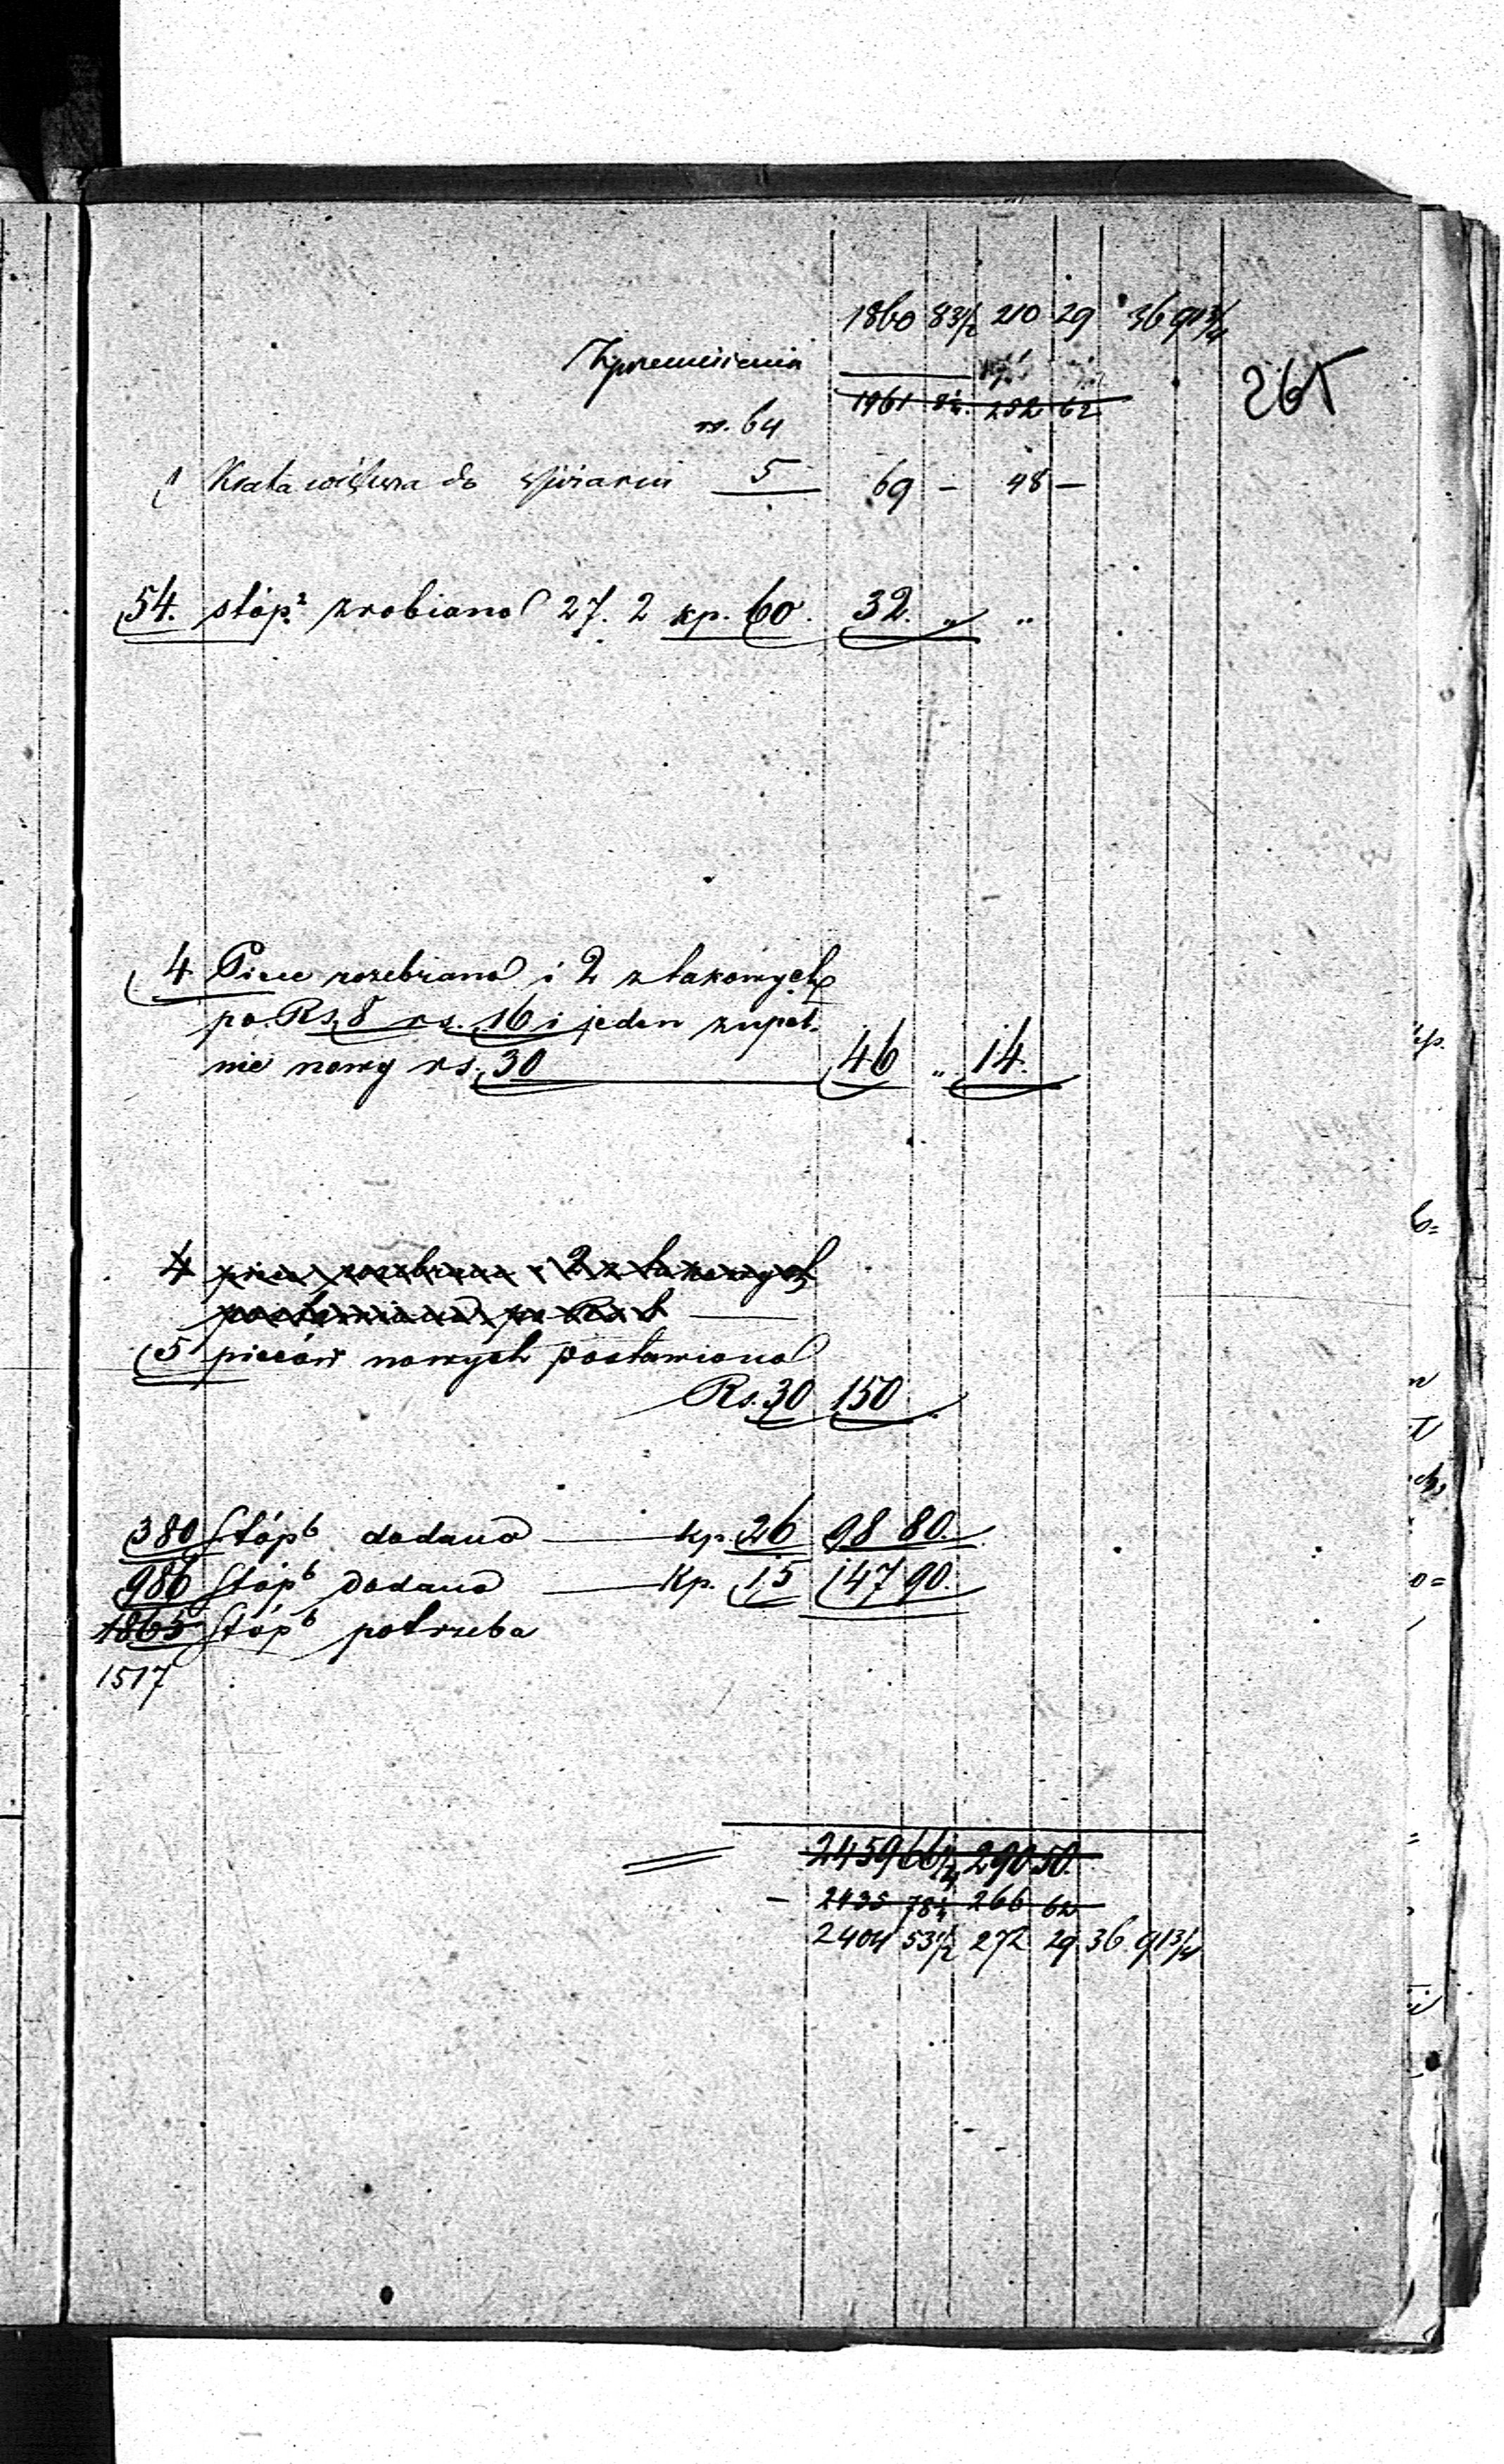 1860 83½ 210 29 36 91¾
Zprzeniesienia
1961 8¼ 252 62
265
rs. 64
1 Krata większa do spiżarni 5 69 — 48 —
54. stóp² zrobiono 27. 2 kp. 60. 32. „ „
4 Piece rozebrano i 2 z takowych
po Rs. 8 rs. 16 i jeden zupeł-
nie nowy rs. 30 46 „ 14.
4 piece rozebrano i 2 z takowych
postawiono po Rs. 8
5 pieców nowych postawiono
Rs. 30 150
380 Stóp⁶ dodano kp. 26 98 80.
986 Stóp⁶ dodano Kp. 15 147 90.
1865 Stóp⁶ potrzeba
1517
2459 66¼ 290 50.
— 2435 78¼ 266 62
2404 53½ 272 29 36 91¾